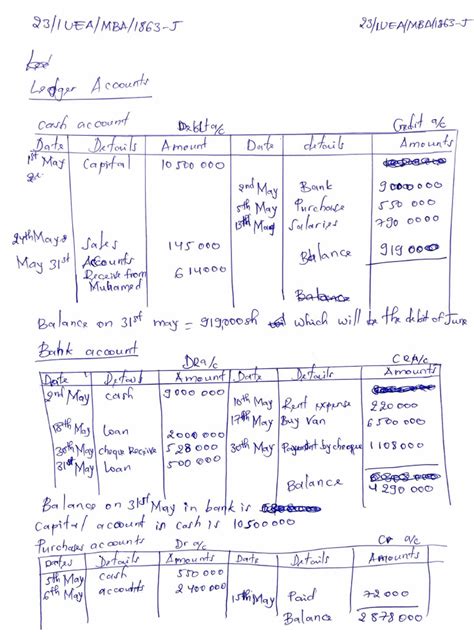 23/1 UEA/MBA/1863-J 23/1UEA/MBA/1863-J
Ledger Accounts
Cash account Debit a/c Credit a/c
Date Details Amount Date details Amounts
1st May Capital 10 500 000
2nd May Bank 9000 000
5th May Purchase 550 000
13th May Salaries 790 000
24th May Sales 145 000
Balance 919 000
May 31st Accounts Receive from Muhamed 614000
Balance
Balance on 31st may = 919,000sh which will be the debit of June
Bank account Dr a/c CR A/c
Date Details Amount Date Details Amounts
2nd May cash 9000 000
16th May Rent expense 220 000
18th May Loan 2000 000 17th May Buy Van 6 500 000
30th May cheque Receive 528 000 30th May Payment by cheque 1108 000
31st May Loan 500 000
Balance 4 290 000
Balance on 31st May in bank is
Capital account in cash is 10 500 000
Purchases accounts Dr a/c Cr a/c
Dates Details Amounts Date Details Amounts
5th May cash 550 000
6th May accounts 2 400 000 15th May Paid 72 000
Balance 2 878 000